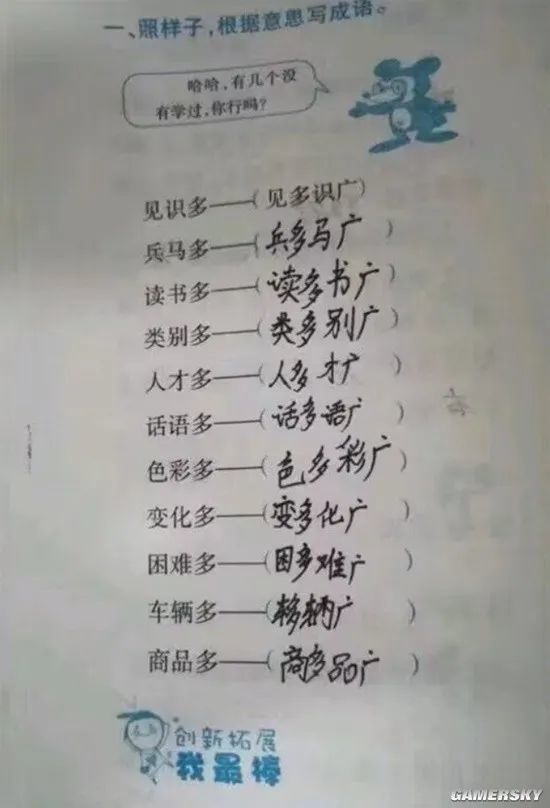 一、照样子，根据意思写成语。
哈哈，有几个没
有学过，你行吗？
见识多——（见多识广）
兵马多——（兵多马广）
读书多——（读多书广）
类别多——（类多别广）
人才多——（人多才广）
话语多——（话多语广）
色彩多——（色多彩广）
变化多——（变多化广）
困难多——（困多难广）
车辆多——（车多辆广）
商品多——（商多品广）
创新拓展
我最棒
GAMERSKY